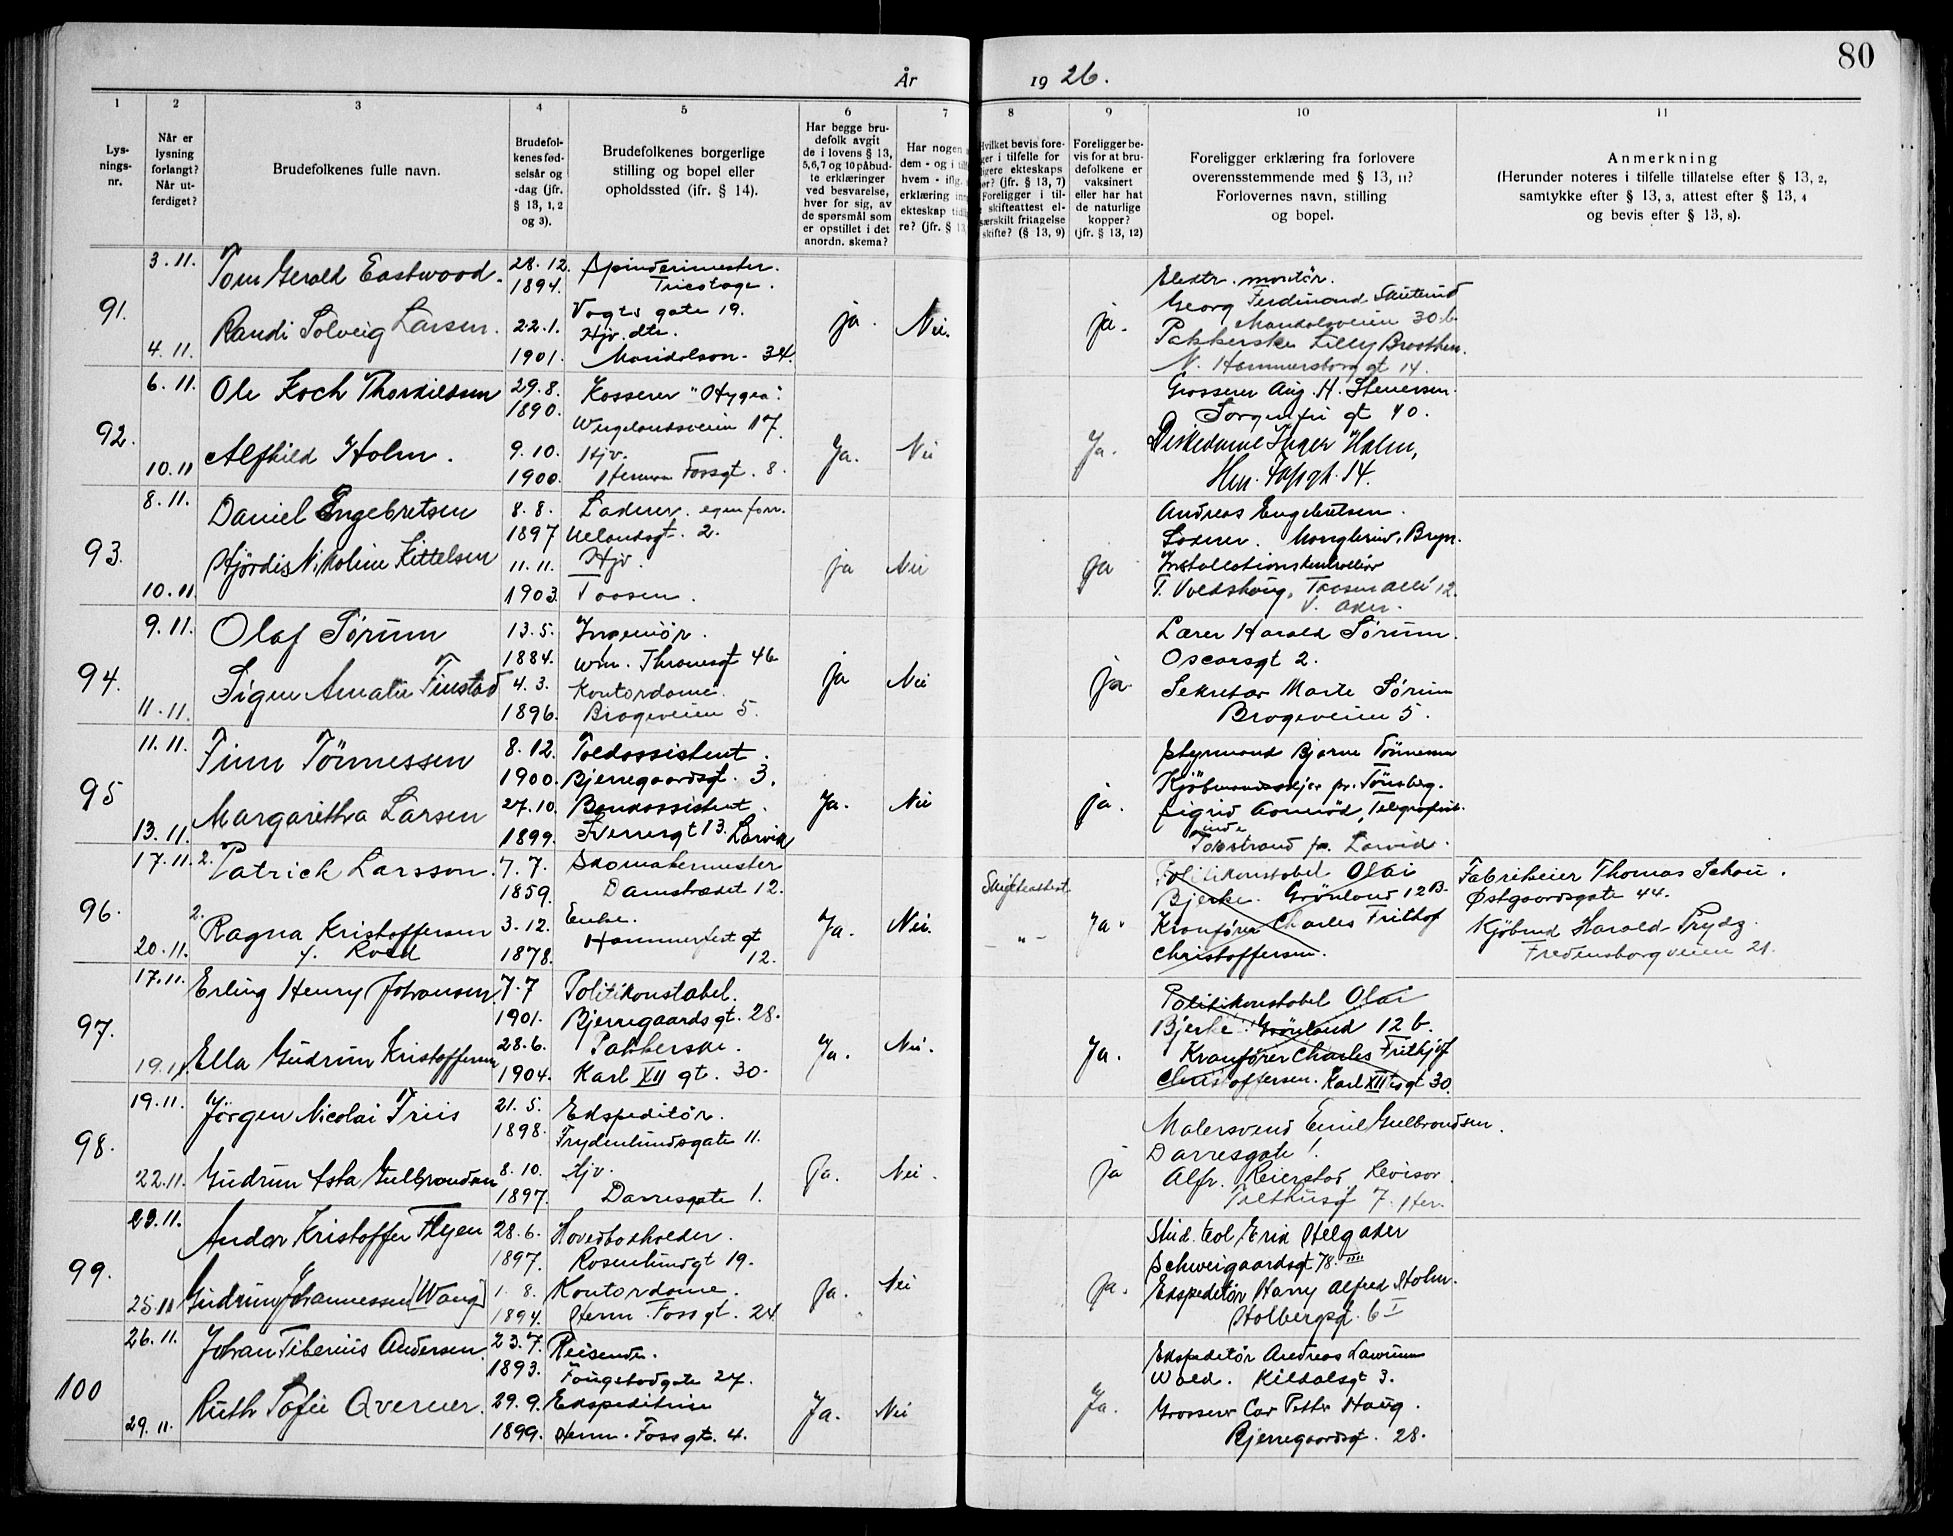 80
År 1926.
1 2 3 4 5 6 7 8 9 10 11
Lys-
nings-
nr.
Når er
lysning
forlangt?
Når ut-
ferdiget?
Brudefolkenes fulle navn.
Brudefol-
kenes fød-
selsår og
-dag (jfr.
§ 13, 1, 2
og 3).
Brudefolkenes borgerlige
stilling og bopel eller
opholdssted (ifr. § 14).
Har begge bru-
defolk avgit
de i lovens § 13,
5,6,7 og 10 påbud-
te erklæringer
ved besvarelse,
hver for sig, av
de spørsmål som
er opstillet i det
anordn. skema?
Har nogen
dem - og i
hvem - iflg.
erklæring
ekteskap
re? (jfr. § 13,
Hvilket bevis fore-
ger i tilfelle for
ligere ekteskaps
ør? (jfr. § 13, 7)
Foreligger i til-
skifteattest el-
særskilt fritagelse
skifte? (§ 13, 9)
Foreligger be-
vis for at bru-
defolkene er
vaksinert
eller har hat
de naturlige
kopper?
(jfr. § 13, 12)
Foreligger erklæring fra forlovere
overensstemmende med § 13, 11?
Forlovernes navn, stilling
og bopel.
Anmerkning
(Herunder noteres i tilfelle tillatelse efter § 13, 2,
samtykke efter § 13, 3, attest efter § 13, 4
og bevis efter § 13, 8).
91.
3.11.
4.11.
Tom Gerald Eastwood.
Randi Solveig Larsen.
28.12.
1894.
22.1.
1901.
Spinderimester.
Tricotage.
Vogts gate 19.
Hjv. dtr.
34.
ja.
Nei.
ja.
Elektr. montør.
Georg Ferdinand
Mandalsveien 30 b
Pakkerske Lilly
N. Hammersborg gt 14.
92.
6.11.
10.11
Ole Koch Thorkildsen
Alfhild Holm.
29.8.
1890.
9.10.
1900.
Kasserer "Hygea".
Wergelandsveien 17.
Hjv.
Herman Fossgt. 8.
Ja.
Nei
Ja.
Grosserer Aug. H. Stenersen.
Sorgenfri gt 40.
Diskedame Inger Holm,
Hm. Fossgt. 14.
93.
8.11.
10.11
Daniel Engebretsen
Hjördis Nikoline Kittelsen
8.8.
1897
11.11.
1903.
Laderer. egen forr.
Uelandsgt. 2.
Hjv.
Taasen.
ja
Nei
ja
Andreas Engebretsen.
Laderer. Manglerud, Bryn.
Installationskontrollør
T. Voldshaug, Taasen allé 12.
V. Aker.
94.
9.11.
11.11.
Olaf Sørum
Signe Amalie Finstad
13.5.
1884.
4.3.
1896.
Ingeniør.
Wm. Thranesgt 46
Kontordame.
Brageveien 5.
ja
Nei
ja.
Lærer Harald Sørum.
Oscarsgt 2.
Sekretær Marte Sørum
Brageveien 5.
95
11.11.
13.11.
Finn Tönnessen
Margarethe Larsen
8.12.
1900.
27.10.
1899.
Toldassistent.
Bjerregaardsgt. 3.
Bankassistent.
Sverresgt 13. Larvik
Ja.
Nei
ja.
Styrmand Bjarne Tönnessen
Kjöbmandskjær pr. Tönsberg.
Sigrid Aamröd, Telegrafist-
inde
Torstrand pr. Larvik.
96.
17.11.
20.11.
2. Patrick Larsson.
2. Ragna Kristoffersen
f. Roed
7.7.
1859.
3.12.
1878.
Skomakermester
Damstrædet 12.
Enke.
Hammerfest gt
12.
Ja.
Nei.
Skifteattest
- " -
Ja.
Politikonstabel Olai
Bjerke. Grønland 12 B.
Kranfører Charles Frithjof
Christoffersen.
Fabrikeier Thomas Schou.
Østgaardsgate 44.
Kjöbmd Harald Prydz
Fredensborgveien 21.
97.
17.11.
19.11
Erling Henry Johansen
Ella Gudrun Kristoffersen
7.7
1901.
28.6.
1904.
Politikonstabel.
Bjerregaards gt. 28.
Pakkerske.
Karl XII gt. 30.
Ja.
Nei.
Ja.
Politikonstabel Olai
Bjerke. Grønland 12 b.
Kranfører Charles Frithjof
Christoffersen. Karl XIItes gt 30.
98.
19.11.
22.11.
Jörgen Nicolai Friis
Gudrun Asta Gulbrandsen
21.5.
1898.
8.10.
1897.
Ekspeditør.
Frydenlundsgate 11.
Hjv.
Darresgate 1.
Ja.
Nei.
ja
Malersvend Emil Gulbrandsen.
Darresgate 1.
Alfr. Reierstad, Revisor
7. Her.
99.
23.11.
25.11
Andor Kristoffer Flyen
Gudrun Johannessen [Wang]
28.6.
1897.
1.8.
1894.
Hovedbokholder.
Rosenlundgt 19.
Kontordame.
Herm. Fossgt. 24
Ja.
Nei
Ja.
Stud. teol Erik Helgaker
Schweigaardsgt 78. IIII
Ekspeditör Harry Alfred Holm.
Holbergsgt. 6 I
100
26.11.
29.11.
Johan Tiberius Andersen.
Ruth Sofie Qverner.
23.7.
1893.
29.9.
1899.
Reisende.
Fougstadgate 27.
Ekspeditrise
Herm. Fossgt. 4.
Ja.
Nei
Ja.
Ekspeditör Andreas
Wold. Kildalsgt 3.
Grosserer Petter Haug.
Bjerregaardsgt. 28.